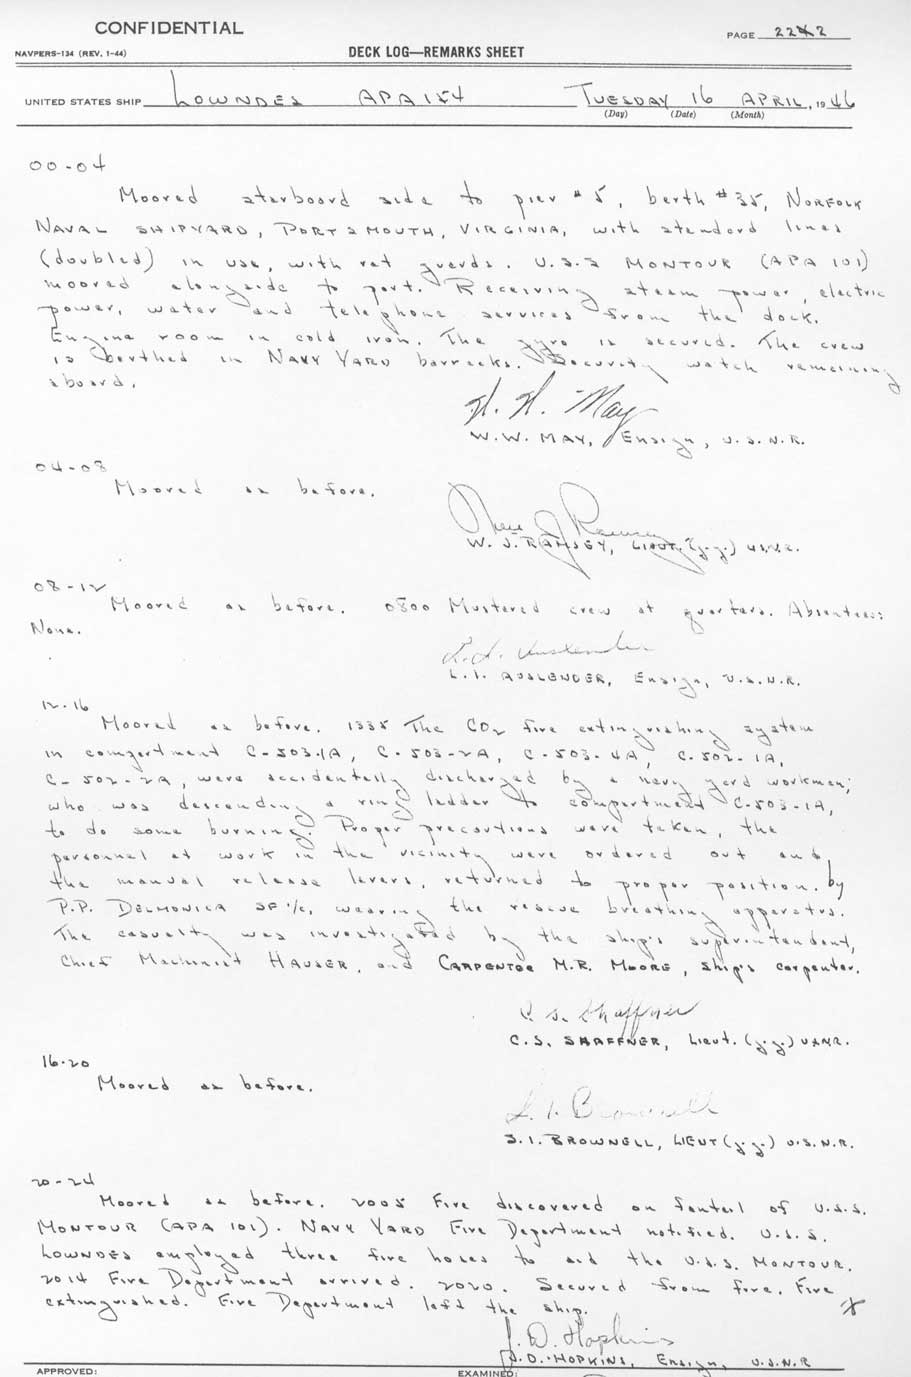 CONFIDENTIAL
PAGE 2242
NAVPERS-134 (REV. 1-44)
DECK LOG—REMARKS SHEET
UNITED STATES SHIP LOWNDES APA 154 TUESDAY 16 APRIL, 1946
(Day) (Date) (Month)
00-04
Moored starboard side to pier #5, berth #35, NORFOLK
NAVAL SHIPYARD, PORTSMOUTH, VIRGINIA, with standard lines
(doubled) in use, with rat guards. U.S.S MONTOUR (APA 101)
moored alongside to port. Receiving steam power, electric
power, water and telephone services from the dock.
Engine room in cold iron. The gyro is secured. The crew
is berthed in NAVY YARD barracks. Security watch remaining
aboard.
W. W. May
W.W. MAY, Ensign, U.S.N.R.
04-08
Moored as before.
W. J. RAMSEY, LIEUT. (j.g.) USNR.
08-12
Moored as before. 0800 Mustered crew at quarters. Absentees:
None.
L. I. Auslender
L. I. AUSLENDER, Ensign, U.S.N.R.
12-16
Moored as before. 1335 The CO2 fire extinguishing system
in compartment C-503-1A, C-503-2A, C-503-4A, C-502-1A,
C-502-2A, were accidentally discharged by a navy yard workman;
who was descending a ring ladder to compartment C-503-1A,
to do some burning. Proper precautions were taken, the
personnel at work in the vicinity were ordered out and,
the manual release levers, returned to proper position. by
P.P. DELMONICA SF 1/c, wearing the rescue breathing apparatus.
The casualty was investigated by the ship's superintendent,
Chief Machinist HAUSER, and CARPENTER M.R. MOORE, ship's carpenter.
C. S. Shaffner
C.S. SHAFFNER, Lieut. (j.g.) USNR.
16-20
Moored as before.
S. I. Brownell
S. I. BROWNELL, LIEUT (j.g.) U.S.N.R.
20-24
Moored as before. 2005 Fire discovered on fantail of U.S.S.
MONTOUR (APA 101). NAVY YARD Fire Department notified. U.S.S.
LOWNDES employed three fire hoses to aid the U.S.S. MONTOUR.
2014 Fire Department arrived. 2020. Secured from fire. Fire
extinguished. Fire Department left the ship.
J. D. Hopkins
J. D. HOPKINS, Ensign, U.S.N.R
APPROVED: EXAMINED: